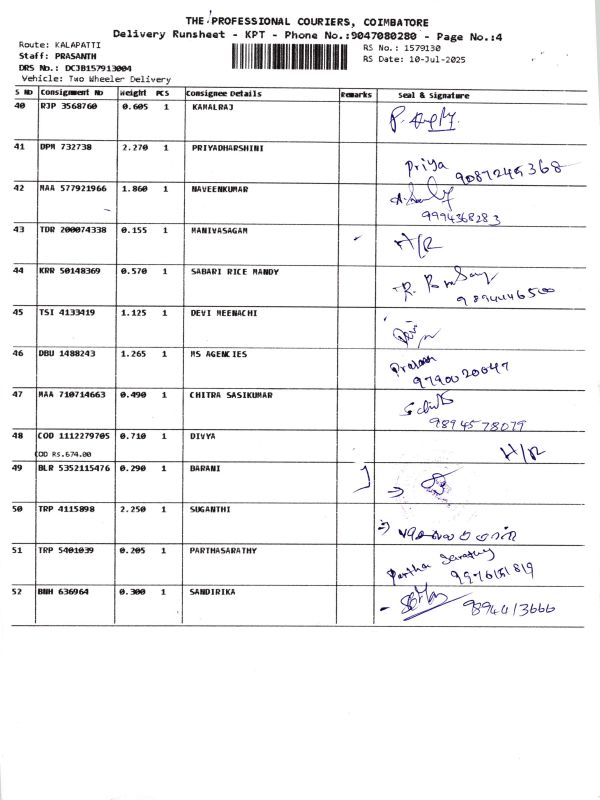 THE PROFESSIONAL COURIERS, COIMBATORE
Delivery Runsheet - KPT - Phone No.:9047080280 - Page No.:4
Route: KALAPATTI
RS No.: 1579130
Staff: PRASANTH
RS Date: 10-Jul-2025
DRS No.: DCJB157913004
Vehicle: Two Wheeler Delivery
S No Consignment No Weight PCS Consignee Details Remarks Seal & Signature
40 RJP 3568760 0.605 1 KAMALRAJ
41 DPM 732738 2.270 1 PRIYADHARSHINI
Priya
42 MAA 577921966 1.860 1 NAVEENKUMAR
9994368283
43 TDR 200074338 0.155 1 MANIVASAGAM
H/R
44 KRR 50148369 0.570 1 SABARI RICE MANDY
45 TSI 4133419 1.125 1 DEVI MEENACHI
46 DBU 1488243 1.265 1 MS AGENCIES
9790020047
47 MAA 710714663 0.490 1 CHITRA SASIKUMAR
9894578079
48 COD 1112279705 0.710 1 DIVYA H/R
COD RS.674.00
49 BLR 5352115476 0.290 1 BARANI
50 TRP 4115898 2.250 1 SUGANTHI
51 TRP 5401039 0.205 1 PARTHASARATHY
Partha Sarathy
52 BNH 636964 0.300 1 SANDIRIKA
9894413666